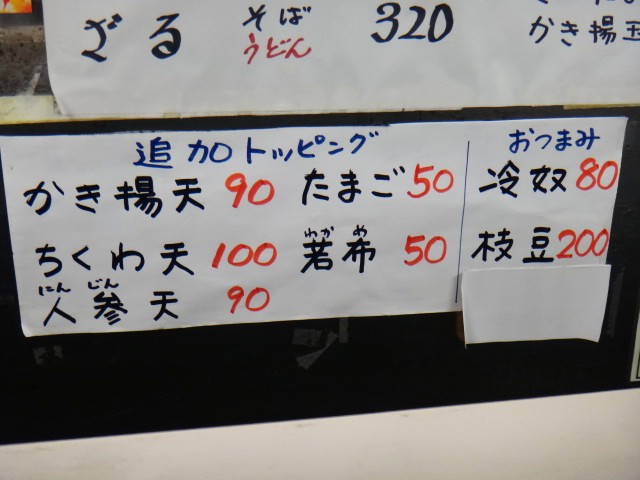 ざる そば 320
うどん
かき揚玉
追加トッピング
かき揚天 90 たまご 50
ちくわ天 100 若布 50
わかめ
にんじん
人参天 90
おつまみ
冷奴 80
枝豆 200